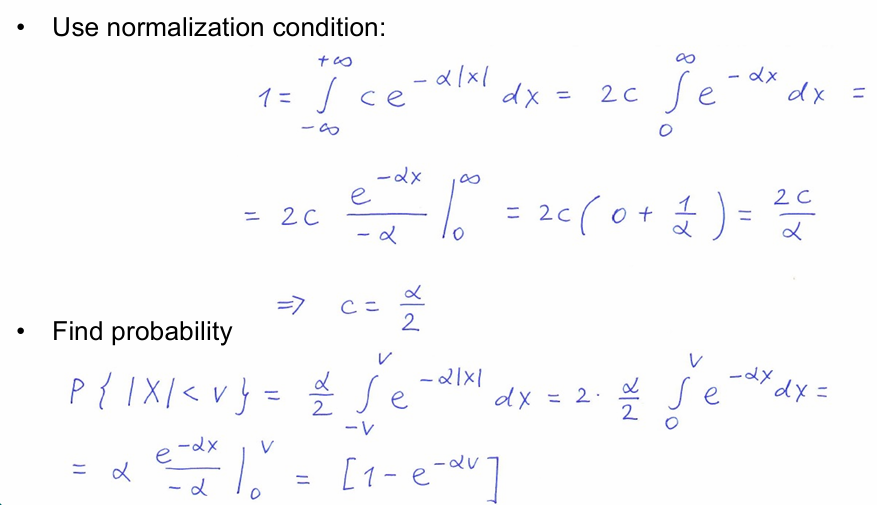 • Use normalization condition:
1 = ∫_{-∞}^{+∞} c e^{-α|x|} dx = 2c ∫_{0}^{∞} e^{-αx} dx =
= 2c \frac{e^{-αx}}{-α} |_{0}^{∞} = 2c ( 0 + \frac{1}{α} ) = \frac{2c}{α}
⇒ c = \frac{α}{2}
• Find probability
P{ |X| < v } = \frac{α}{2} ∫_{-v}^{v} e^{-α|x|} dx = 2 · \frac{α}{2} ∫_{0}^{v} e^{-αx} dx =
= α \frac{e^{-αx}}{-α} |_{0}^{v} = [1 - e^{-αv}]